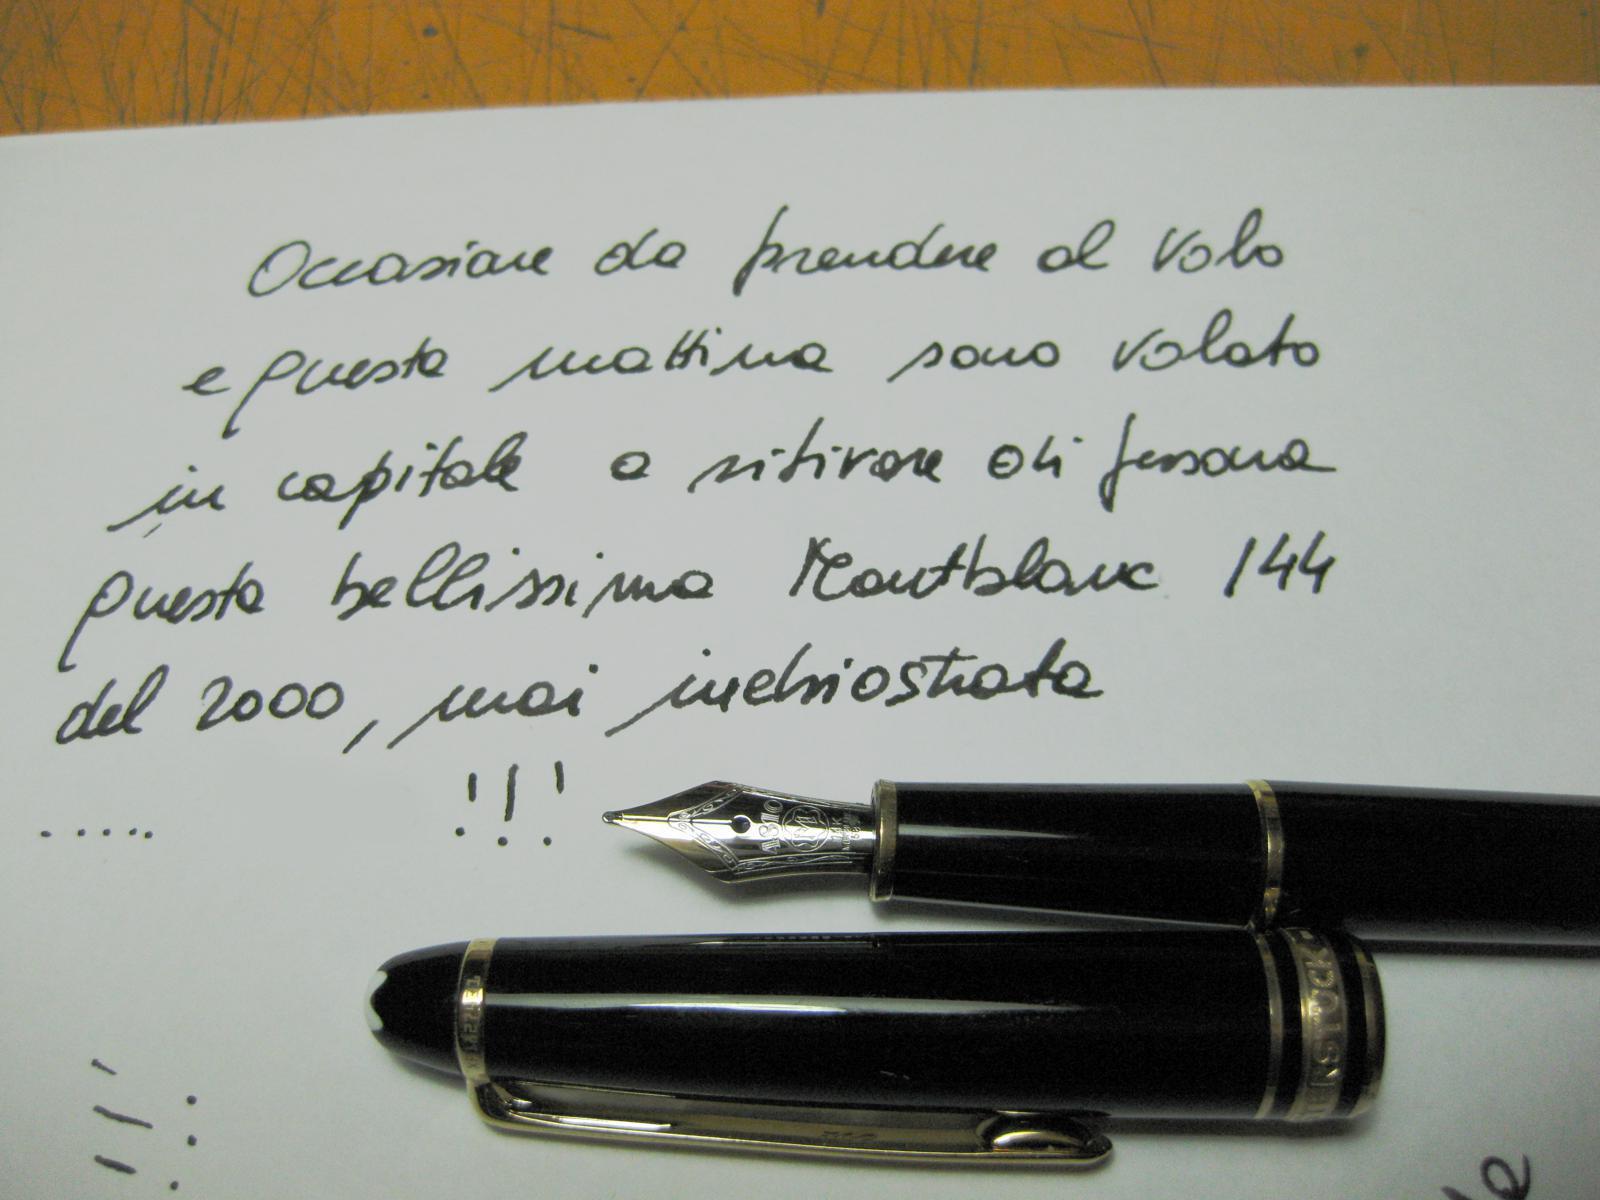 Occasione da prendere al volo
e questa mattina sono volato
in capitale a ritirare di persona
questa bellissima Montblanc 144
del 2000, mai inchiostrata
..... !!!
4810
M
14K